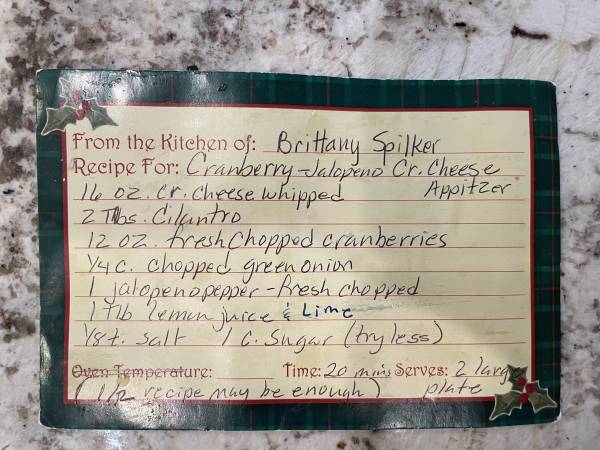 From the Kitchen of: Brittany Spilker
Recipe For: Cranberry-Jalopeno Cr. Cheese
Appitzer
16 oz. cr. cheese whipped
2 Tbs. Cilantro
12 oz. fresh chopped cranberries
1/4 c. chopped green onion
1 jalopeno pepper - fresh chopped
1 Tlb lemon juice & Lime
1/8 t. salt 1 C. Sugar (try less)
Oven Temperature: Time: 20 mins Serves: 2 large
(1/2 recipe may be enough) plate